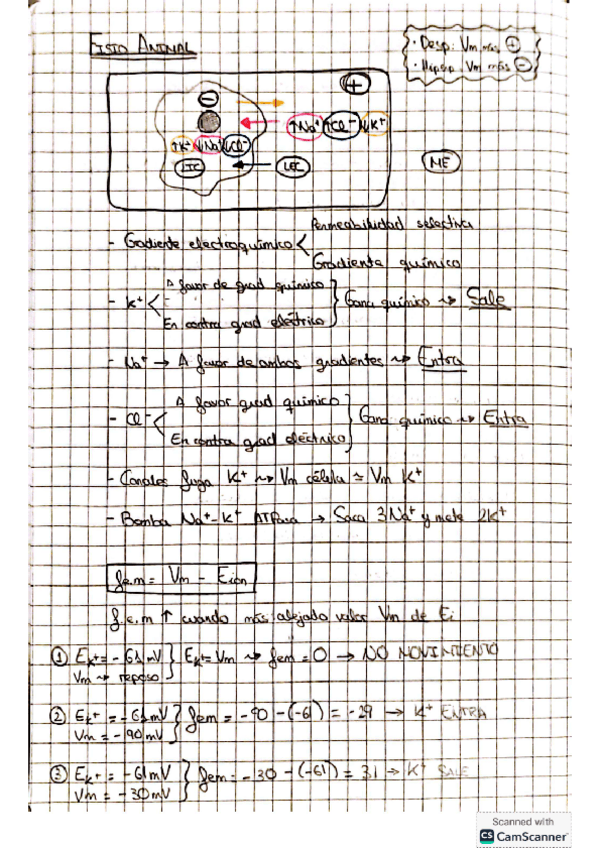 FISIO ANIMAL
· Desp: Vm más ⊕
· Hiperp: Vm más ⊖
+
-
↑Na⁺ ↑Cl⁻ ↓K⁺
↑K⁺ ↓Na⁺ ↓Cl⁻
LIC
LEC
ME
- Gradiente electroquímico < Permeabilidad selectiva
Gradiente químico
- K⁺ < A favor de grad químico
En contra grad eléctrico } Gana químico ⇝ Sale
- Na⁺ → A favor de ambos gradientes ⇝ Entra
- Cl⁻ < A favor grad químico
En contra grad eléctrico } Gana químico ⇝ Entra
- Canales fuga K⁺ ⇝ Vm célula ≃ Vm K⁺
- Bomba Na⁺-K⁺ ATPasa → Saca 3Na⁺ y mete 2K⁺
f.e.m = Vm - Eion
f.e.m ↑ cuando más alejado valor Vm de Ei
① EK⁺ = -61mV } EK⁺ = Vm ⇝ fem = 0 → NO MOVIMIENTO
Vm ⇝ reposo
② EK⁺ = -61mV } fem = -90 - (-61) = -29 → K⁺ ENTRA
Vm = -90mV
③ EK⁺ = -61mV } fem = -30 - (-61) = 31 → K⁺ SALE
Vm = -30mV
Scanned with
CS CamScanner